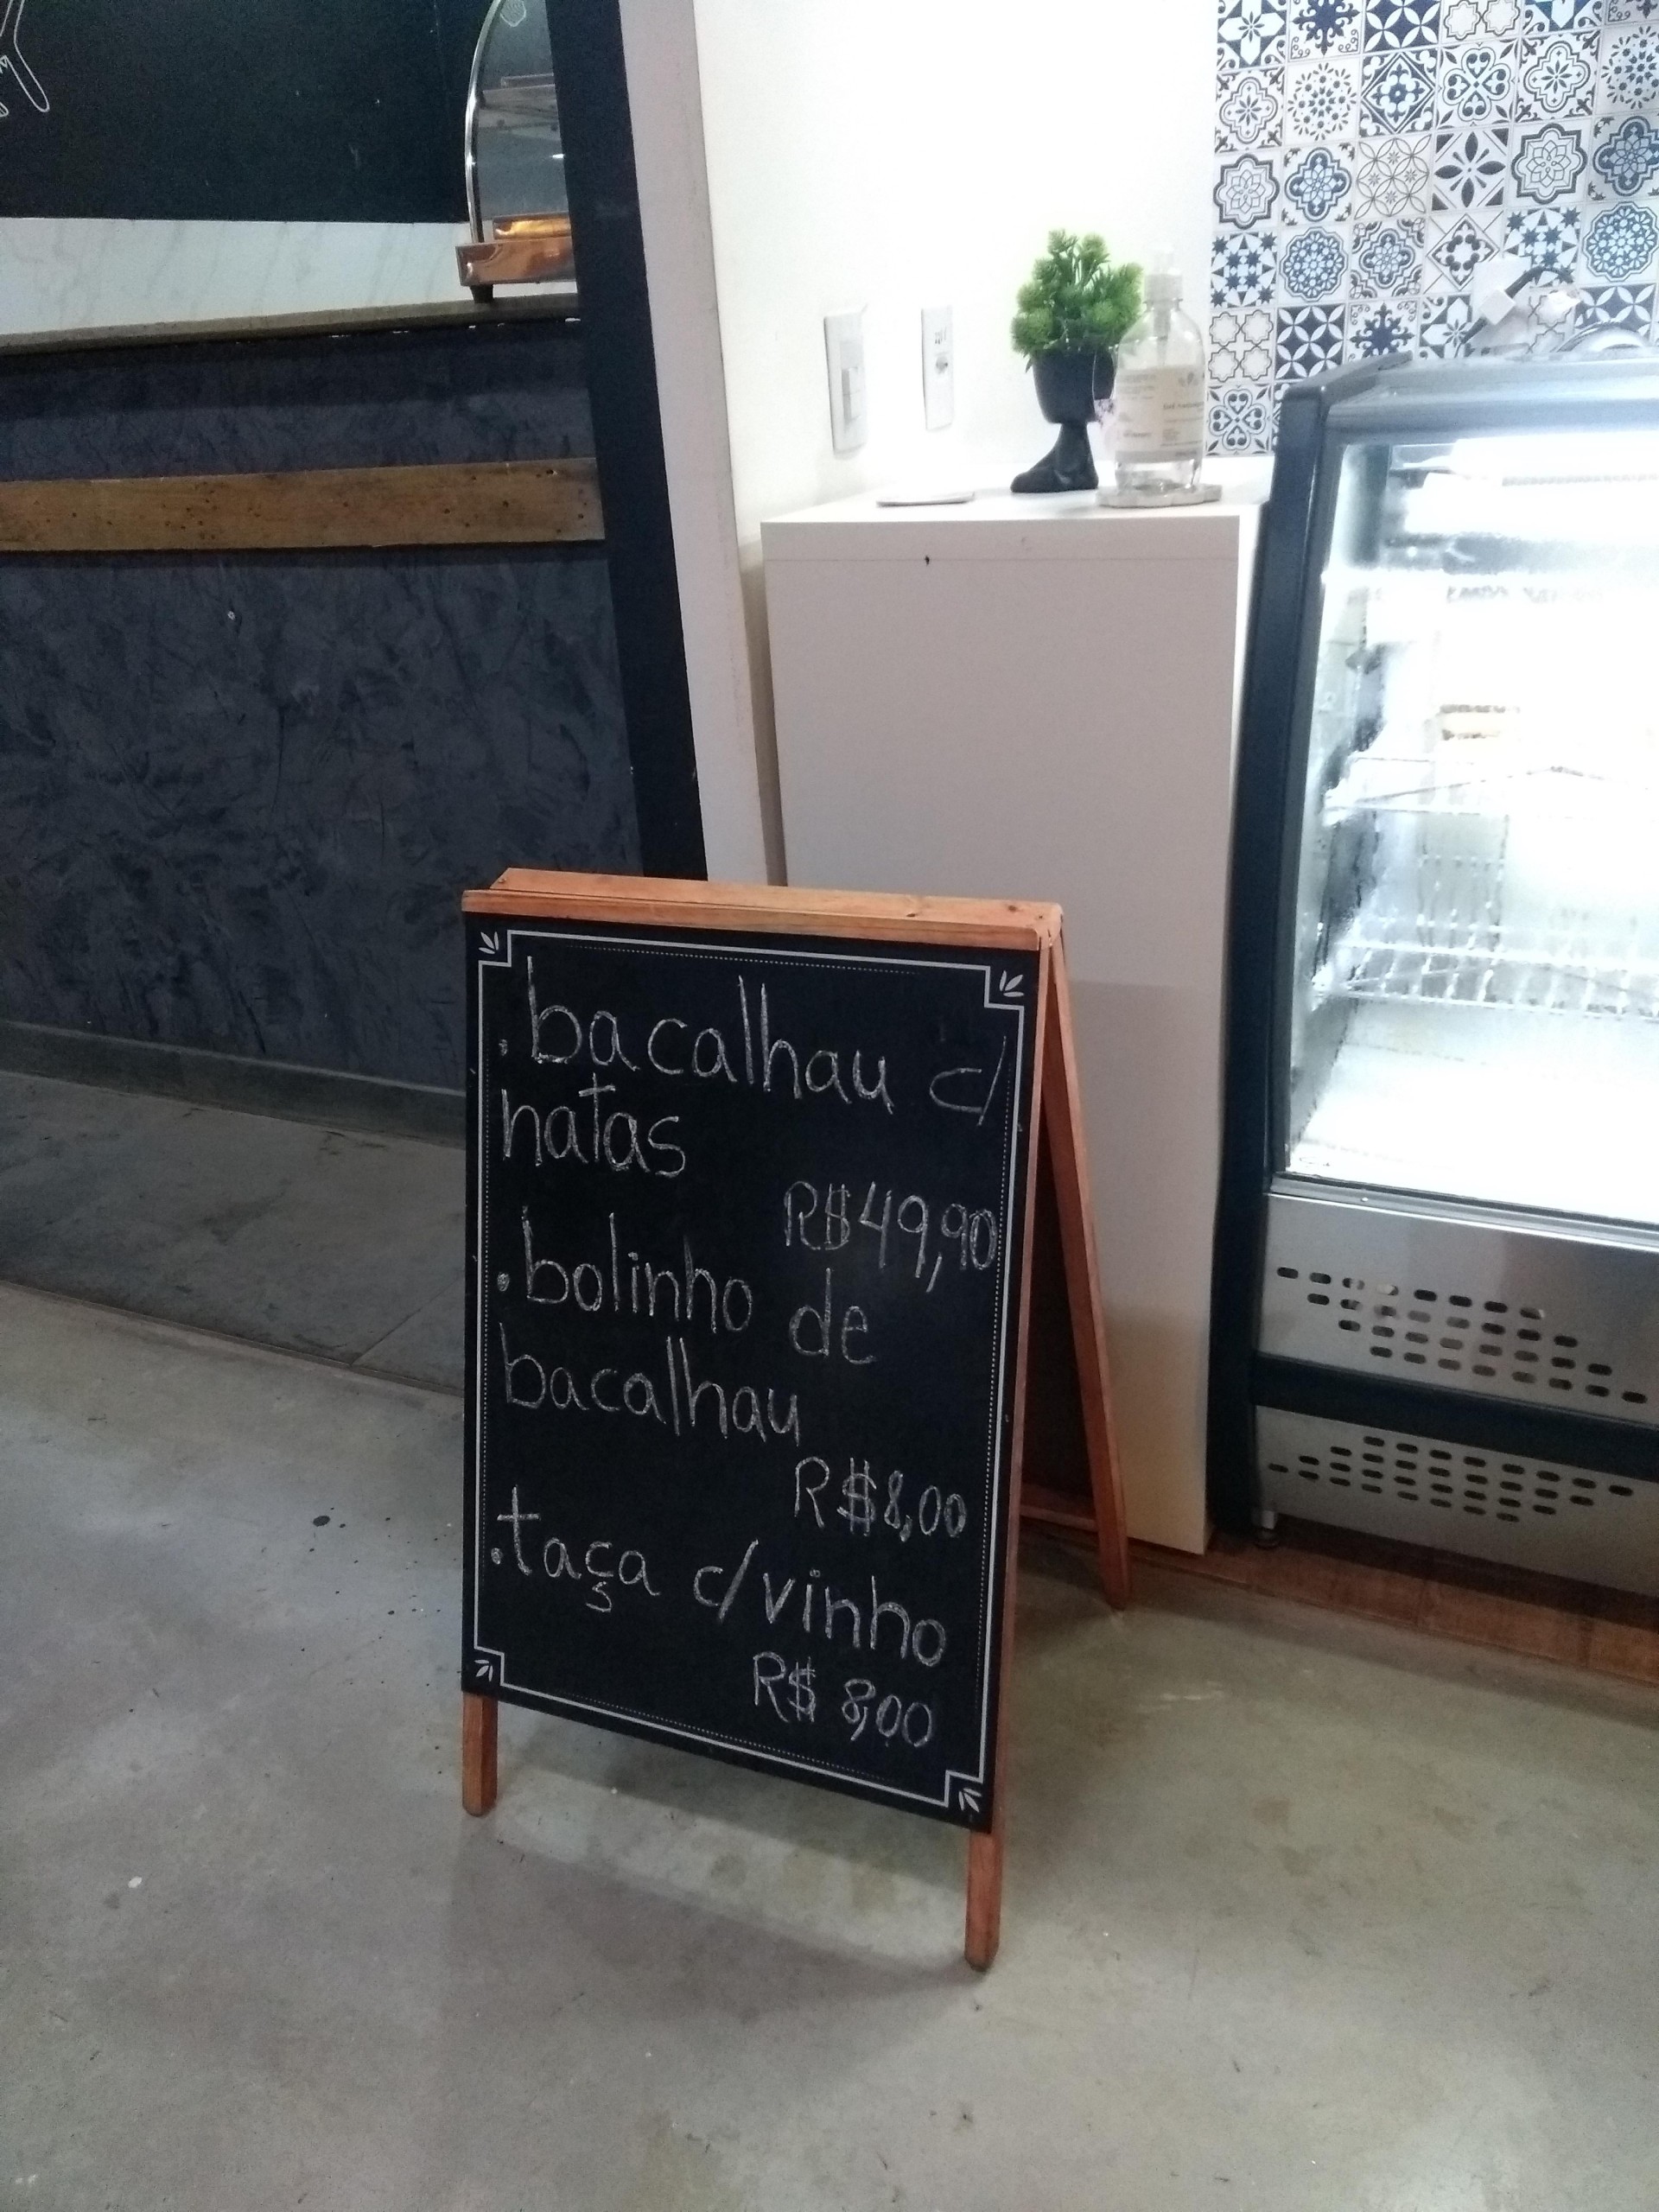 .bacalhau c/
natas
R$49,90
.bolinho de
bacalhau
R$8,00
.taça c/vinho
R$ 8,00